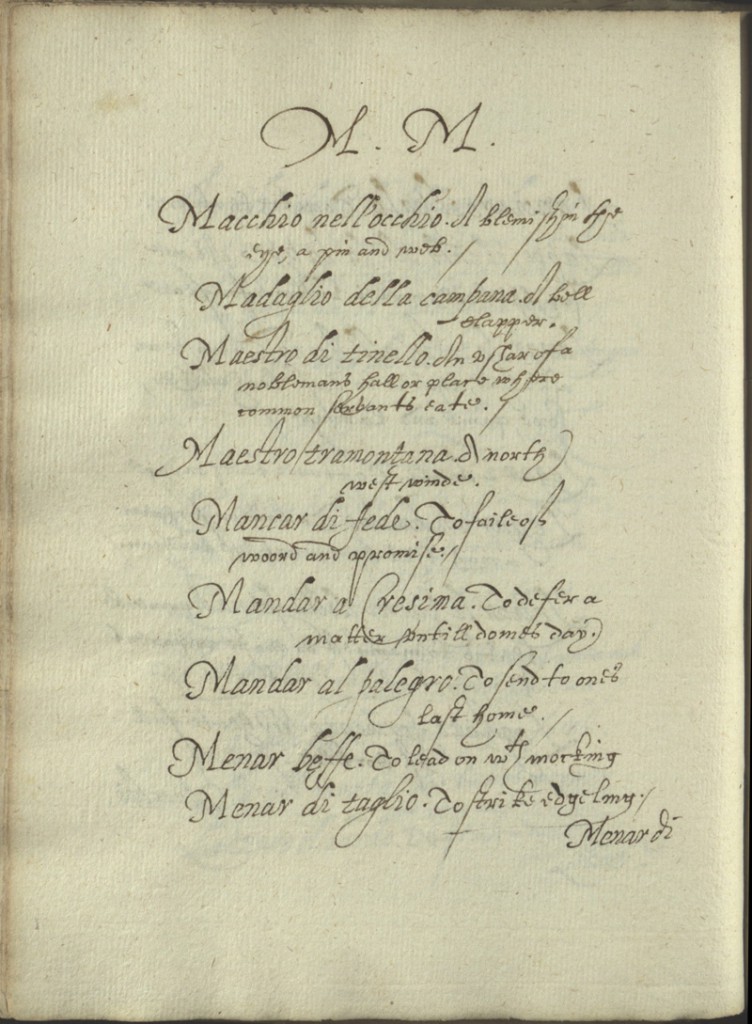 M. M.
Macchio nell'occhio. A blemish in the
eye, a pin and web. /
Madaglio della campana. A bell
clapper.
Maestro di tinello. An vshar of a
noblemans hall or place where
common servants eate. /
Maestro tramontana. A north
west winde.
Mancar di fede. To faile of
woord and promise. /
Mandar a Cresima. To defer a
matter vntill domes day.
Mandar al palegro. To send to ones
last home. /
Menar beffe. To lead on wth mocking
Menar di taglio. To strike edgeling. /
Menar di